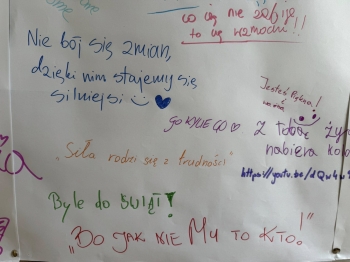 co cię nie zabije
to cię wzmocni!!
Nie bój się zmian,
dzięki nim stajemy się
silniejsi
Jesteś Piękna!
Z Tobą
nabiera
"Siła rodzi się z trudności"
https://youtu.be/dQw4w
Byle do ŚWIĄT!
"BO JAK NIE MY TO KTO!"